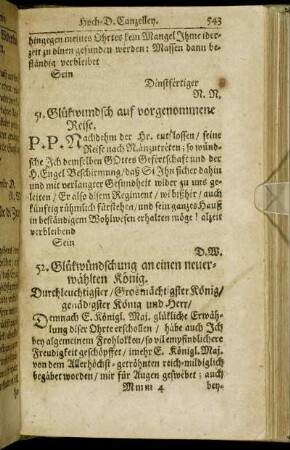 Hoch-D. Canzelley. 543
hingegen meines Ohrtes kein Mangel Ihme ider-
zeit zu dinen gefunden werden: Massen dann be-
ständig verbleibet
Sein
Dinstfärtiger
N. N.
51. Glükwundsch auf vorgenommene
Reise.
P. P. Nachdehm der Hr. entschlossen / seine
Reise nach N anzutreten; so wünd-
sche Ich demselben GOttes Gefertschaft und der
H. Engel Beschirmung / daß Si Ihn sicher dahin
und mit verlangter Gesundheit wider zu uns ge-
leiten / Er also disem Regiment / wi bißher / auch
künftig rühmlich fürstehen / und sein ganzes Hauß
in beständigem Wohlwesen erhalten möge! alzeit
verbleibend
Sein
D. W.
52. Glükwündschung an einen neuer-
wählten König.
Durchleuchtigster / Großmächtigster König /
genädigster König und Herr /
Demnach E. Königl. Maj. glükliche Erwäh-
lung diser Ohrte erschollen / habe auch Ich
bey algemeinem Frohlokken / so vil empfindlichere
Freudigkeit geschöpffet / imehr E. Königl. Maj.
von dem Allerhöchst-getröhnten reich-mildiglich
begabet worden / mir für Augen geswebet; auch
Mmm 4 bey-